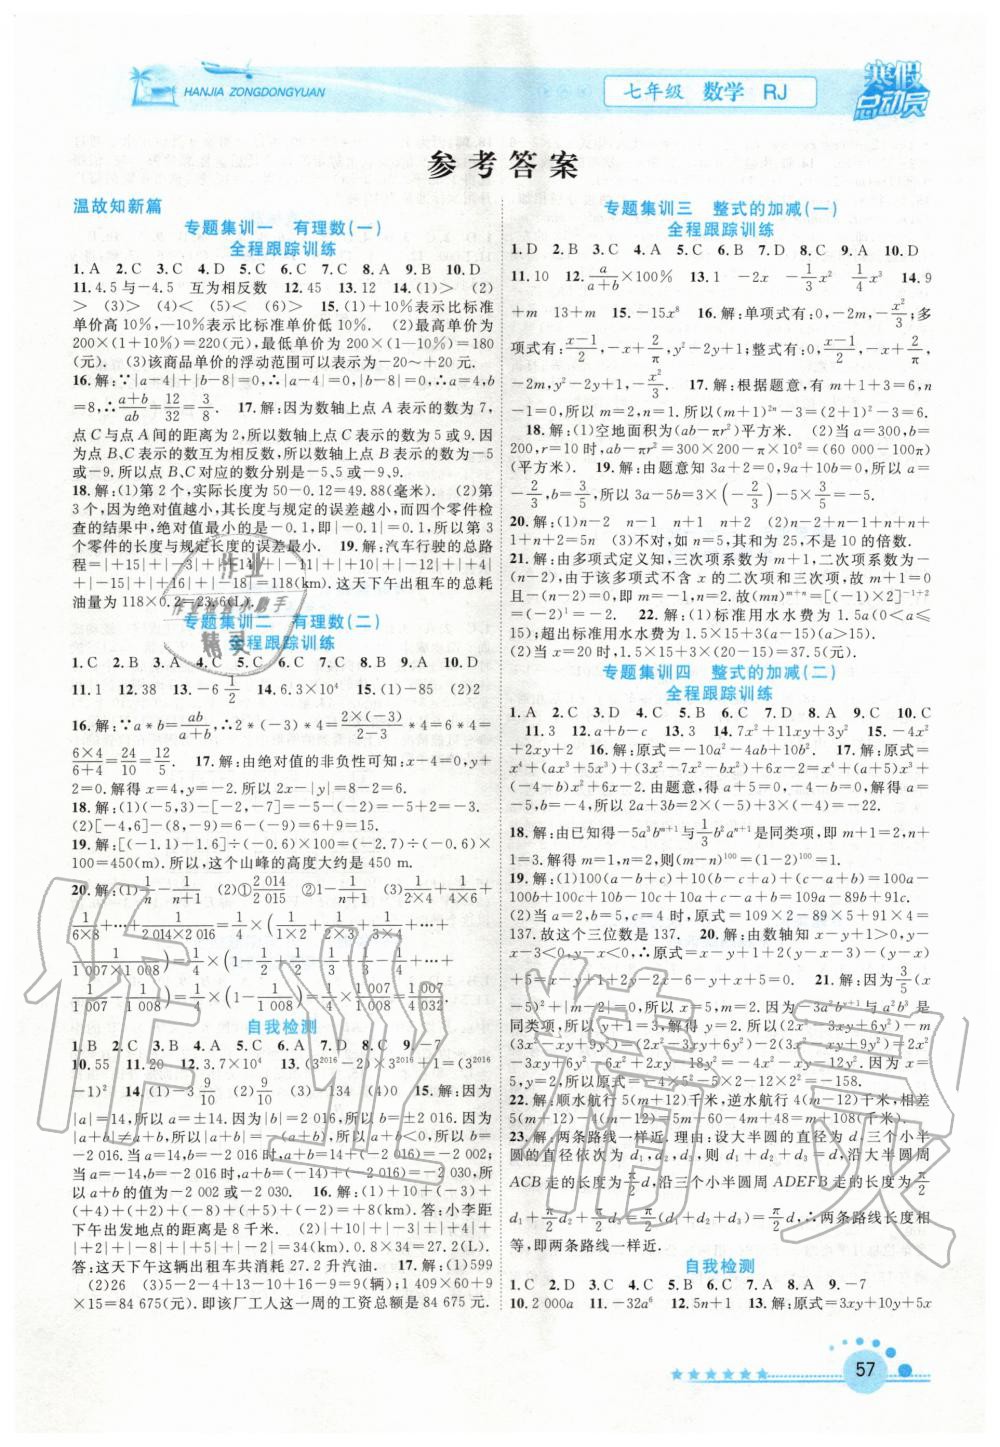 HANJIA ZONGDONGYUAN
七年级 数学 RJ
寒假总动员
参考答案
温故知新篇
专题集训一 有理数(一)
全程跟踪训练
1. A 2. C 3. C 4. D 5. C 6. D 7. C 8. A 9. B 10. D
11. 4.5与-4.5 互为相反数 12. 45 13. 12 14. (1)> (2)
> (3)> (4)< (5)< (6)> 15. (1)+10%表示比标准
单价高10%,-10%表示比标准单价低10%. (2)最高单价为
200×(1+10%)=220(元),最低单价为200×(1-10%)=180
(元). (3)该商品单价的浮动范围可以表示为-20~+20元.
16. 解:∵|a-4|+|b-8|=0,∴|a-4|=0,|b-8|=0,∴a=4,b
=8,∴(a+b)/ab=12/32=3/8. 17. 解:因为数轴上点A表示的数为7,
点C与点A间的距离为2,所以数轴上点C表示的数为5或9.因
为点B、C表示的数互为相反数,所以数轴上点B表示的数为-5
或-9.所以点B、C对应的数分别是-5、5或-9、9.
18. 解:(1)第2个,实际长度为50-0.12=49.88(毫米). (2)第
3个,因为绝对值越小,其长度与规定长度越小,而四个零件检
查的结果中,绝对值最小的是-0.1,即|-0.1|=0.1,所以第3
个零件的长度与规定长度的误差最小. 19. 解:汽车行驶的总路
油量为118×0.2=23.6(L).
专题集训二 有理数(二)
全程跟踪训练
1. C 2. D 3. A 4. C 5. C 6. B 7. C 8. A 9. A 10. D
11. 1 12. 38 13. -6 1/2 14. 6.3×10⁴ 15. (1)-85 (2)2
16. 解:∵a*b=ab/(a+b),∴2*(-3)*4=(2×(-3))/(2-3)*4=6*4=
(6×4)/(6+4)=24/10=12/5. 17. 解:由绝对值的非负性可知:x-4=0,y+
2=0.解得x=4,y=-2.所以2x-|y|=8-2=6.
18. 解:(1)(-5,3)-[-2,-7]=-5-(-2)=-5+2=-3.
(2)[-4,6]-(-8,-9)=6-(-9)=6+9=15.
19. 解:[(-1.1)-1.6]÷(-0.6)×100=(-2.7)÷(-0.6)×
100=450(m).所以,这个山峰的高度大约是450 m.
20. 解:(1)1/n-1/(n+1) (2)①2 014/2 015 ②n/(n+1) (3)1/(2×4)+1/(4×6)+
1/(6×8)+…+1/(2 014×2 016)=1/4×(1/(1×2)+1/(2×3)+1/(3×4)+…+
1/(1 007×1 008))=1/4×(1-1/2+1/2-1/3+1/3-1/4+…+
1/1 007-1/1 008)=1/4×(1-1/1 008)=1/4×1 007/1 008=1 007/4 032.
自我检测
1. B 2. C 3. B 4. C 5. A 6. A 7. B 8. C 9. -7
10. 55 11. 20 12. 3.7×10⁴ 13. (3²⁰¹⁶-2)×3²⁰¹⁶+1=(3²⁰¹⁶
-1)² 14. (1)-3 9/10 (2)9/10 (3)-134 (4)0 15. 解:因为
|a|=14,所以a=±14.因为|b|=2 016,所以b=±2 016.因为
|a+b|≠a+b,所以|a+b|=-(a+b),所以a+b<0,所以b=-2
016.当a=14,b=-2 016时,a+b=14+(-2 016)=-2 002;
当a=-14,b=-2 016时,a+b=(-14)+(-2 016)=-2 030,
所以a+b的值为-2 002或-2 030. 16. 解:(1)+10+(-3)+
(+4)+(+2)+(-8)+(+5)+(-2)=+8(km).答:小李距
下午出发地点的距离是8千米. (2)|+10|+|-3|+|+4|+
|+2|+|-8|+|+5|+|-2|=34(km). 0.8×34=27.2(L).
答:这天下午这辆出租车共消耗27.2升汽油. 17. 解:(1)599
(2)26 (3)5-2-4+13-10+16-9=9(辆);1 409×60+9
×15=84 675(元).即该厂工人这一周的工资总额是84 675元.
专题集训三 整式的加减(一)
全程跟踪训练
1. D 2. B 3. C 4. A 5. C 6. B 7. D 8. C 9. A 10. D
11. 10 12. a/(a+b)×100% 13. 1 -2x -1/3x² 1/4x³ 14. 9
+m 13+m 15. -15x⁸ 16. 解:单项式有:0,-2m,-x²/3;多
项式有:(x-1)/2,-x+2/π,y²-2y;整式有:0,(x-1)/2,-x+2/π,
-2m,y²-2y,-x²/3. 17. 解:根据题意,有m+1+3=6,n
-1=0,所以m=2,n=1.所以(m+1)²ⁿ-m³=(2+1)²-2³=1.
18. 解:(1)空地面积为(ab-πr²)平方米. (2)当a=300,b=
200,r=10时,ab-πr²=300×200-π×10²=(60 000-100π)
(平方米). 19. 解:由题意知3a+2=0,9a+10b=0,所以a=
-2/3,b=3/5,所以2a-5b=2×(-2/3)-5×3/5=-13/3.
20. 解:(1)n-2 n-1 n+1 n+2 (2)n-2+n-1+n+n+
1+n+2=5n (3)不对,如n=5,其和为25,不是10的倍数.
21. 解:由多项式定义知,三次项系数为m+1,二次项系数为-
n,由于该多项式不含x的二次项和三次项,故m+1=0且
-n=0,
(2)当x=20时,1.5×15+3×(20-15)=37.5(元).
专题集训四 整式的加减(二)
全程跟踪训练
1. A 2. C 3. D 4. C 5. B 6. C 7. D 8. A 9. C 10. C
11. 3 12. a-b+c 13. 3 14. 7x²+11xy+3y² 15. -4x²
+2xy+2 16. 解:原式=-10a²-4ab+10b². 17. 解:原式=
x⁴+(ax³+5x³)+(3x²-7x²-bx²)+6x-2=x⁴+(a+5)x³+
(-4-b)x²+6x-2.由题意,得a+5=0,-4-b=0.解得a=
-5,b=-4,所以2a+3b=2×(-5)+3×(-4)=-22.
18. 解:由已知得-5a³bᵐ⁺¹与1/3b²aⁿ⁺¹是同类项,即m+1=2,n+
1=3.解得m=1,n=2.所以(m-n)¹⁰⁰=(1-2)¹⁰⁰=1.
19. 解:(1)100(a-b+c)+10b+(-c+a+b)-2=100a-
100b+100c+10b-10c+10a+b=109a-89b+91c.
(2)当a=2,b=5,c=4时,原式=109×2-89×5+91×4=
137.故这个三位数是137. 20. 解:由数轴知x-y+1>0,y-
x-3<0,y-x<0,∴原式=x-y+1-2(-y+x+3)-(y-x)
+5=x-y+1+2y-2x-6-y+x+5=0. 21. 解:因为3/5(x
-5)²+|m-2|=0,所以x=5,m=2.因为-3a²bʸ⁺¹与a²b³是
同类项,所以y+1=3,解得y=2.所以(2x²-3xy+6y²)-m(3x²-xy+9y²)
22. 解:顺水航行5(m+12)千米,逆水航行(m-12)千米,相差
5(m+12)-(m-12)=5m+60-m+12=4m+72
23. 解:两条路线一样近.理由:设大半圆的直径为d,三个小半
圆的直径依次为d₁,d₂,d₃,则d₁+d₂+d₃=d.沿大半圆周
ACB走的长度为π/2d,沿三个小半圆周ADEFB走的长度为π/2
d₁+π/2d₂+π/2d₃=π/2(d₁+d₂+d₃)=π/2d,∴两条路线长度相
等,即两条路线一样近.
自我检测
1. C 2. D 3. A 4. D 5. C 6. B 7. D 8. A 9. -7
10. 2 000a 11. -32a⁶ 12. 5n+1 13. 解:原式=3xy+10y+5x
57
作业精灵